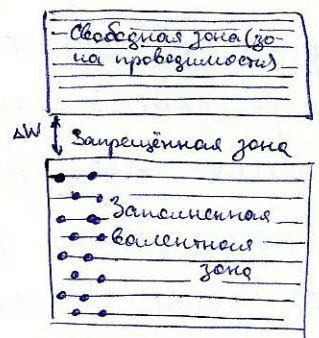 Свободная зона (зо-
на проводимости)
ΔW
Запрещённая зона
Заполненная
валентная
зона